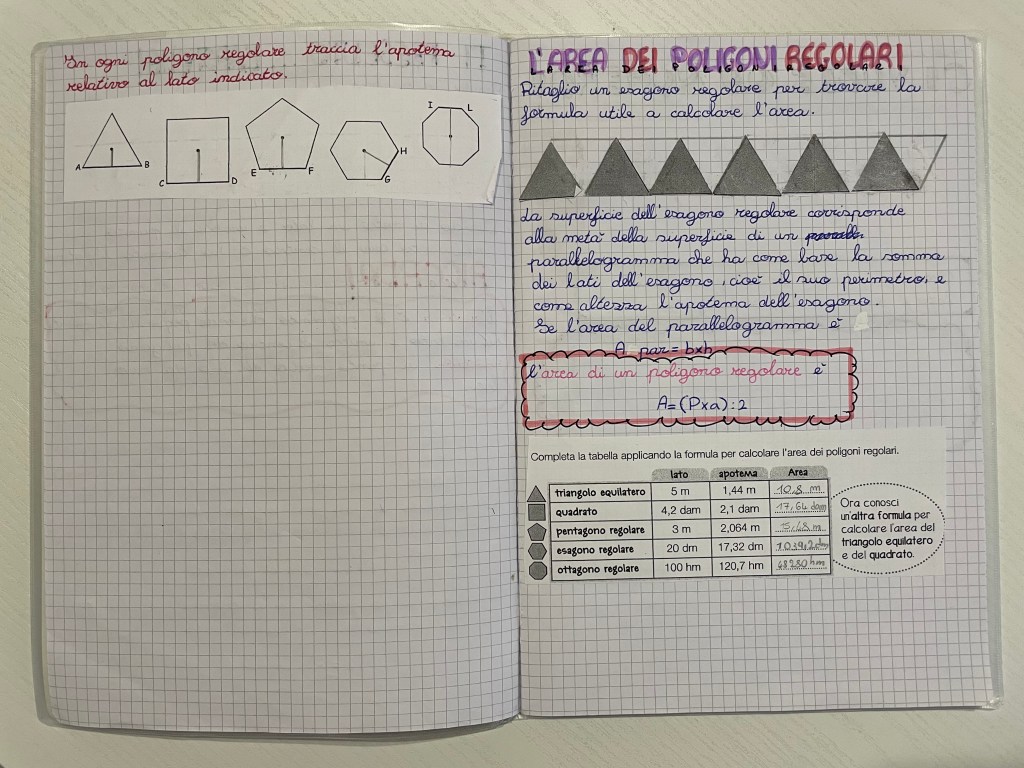 In ogni poligono regolare traccia l'apotema
relativo al lato indicato.
A B
C D
E F
H
G
I L
L'AREA DEI POLIGONI REGOLARI
Ritaglio un esagono regolare per trovare la
formula utile a calcolare l'area.
La superficie dell'esagono regolare corrisponde
alla metà della superficie di un
parallelogramma che ha come base la somma
dei lati dell'esagono, cioè il suo perimetro, e
come altezza l'apotema dell'esagono.
Se l'area del parallelogramma è
A par = bxh
l'area di un poligono regolare è
A=(Pxa):2
Completa la tabella applicando la formula per calcolare l'area dei poligoni regolari.
lato apotema Area
triangolo equilatero 5 m 1,44 m 10,8 m
quadrato 4,2 dam 2,1 dam 17,64 dam
pentagono regolare 3 m 2,064 m
esagono regolare 20 dm 17,32 dm
ottagono regolare 100 hm 120,7 hm
Ora conosci
un'altra formula per
calcolare l'area del
triangolo equilatero
e del quadrato.